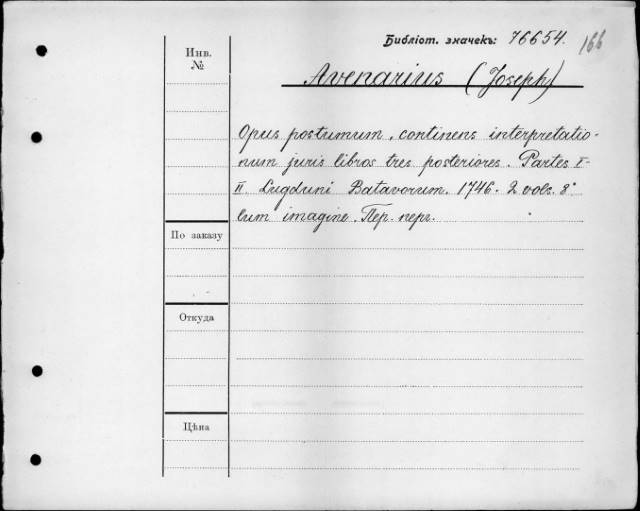 Библіот. значекъ: 76654. 166
Инв.
№
Avenarius (Joseph)
Opus postumum, continens interpretatio-
num juris libros tres posteriores. Partes I-
II Lugduni Batavorum. 1746. 2 vols. 8°
Cum imagine. Пер. перг.
По заказу
Откуда
Цѣна